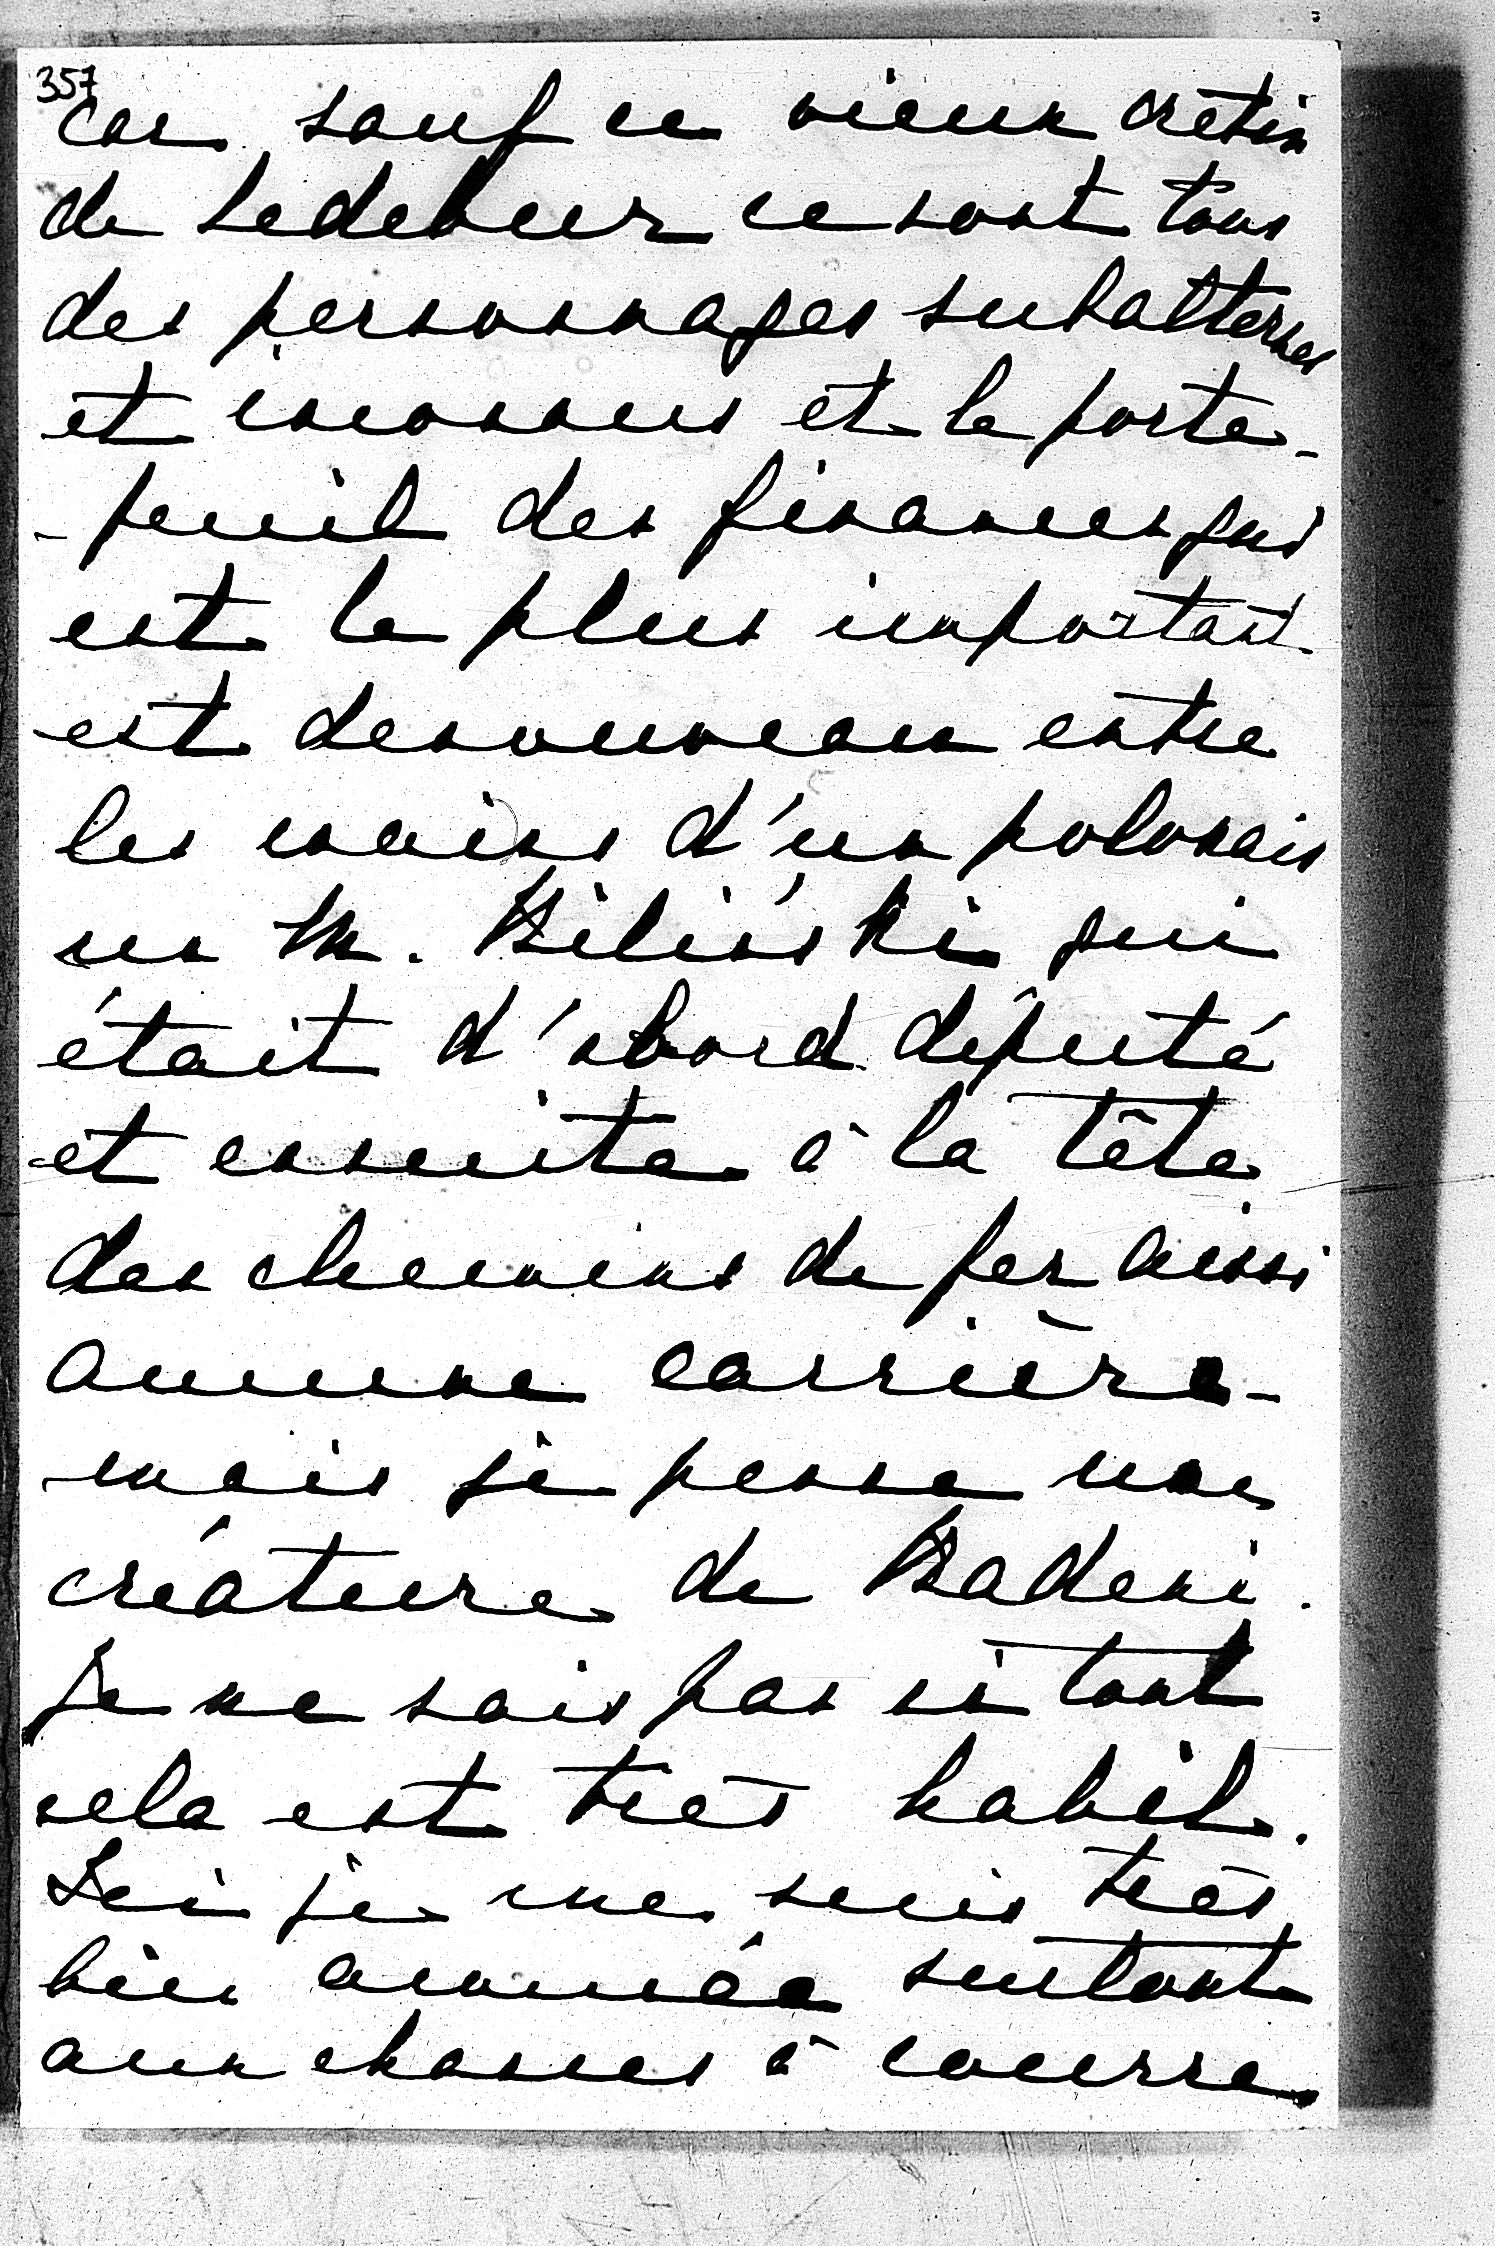 357
car sauf ce vieux cretin
de Ledebur ce sont tous
des personnages subalternes
et inconnus et le porte-
-feuil des finances qui
est le plus important
est denouveau entre
les mains d'un polonais
un M. Biliński qui
était d'abord député
et ensuite à la tête
des chemins de fer aussi
aucune carrière -
mais je pense une
créature de Badeni.
Je ne sais pas si tout
cela est tres habil.
Ici je me suis tres
bien amusée surtout
aux chasses à courre